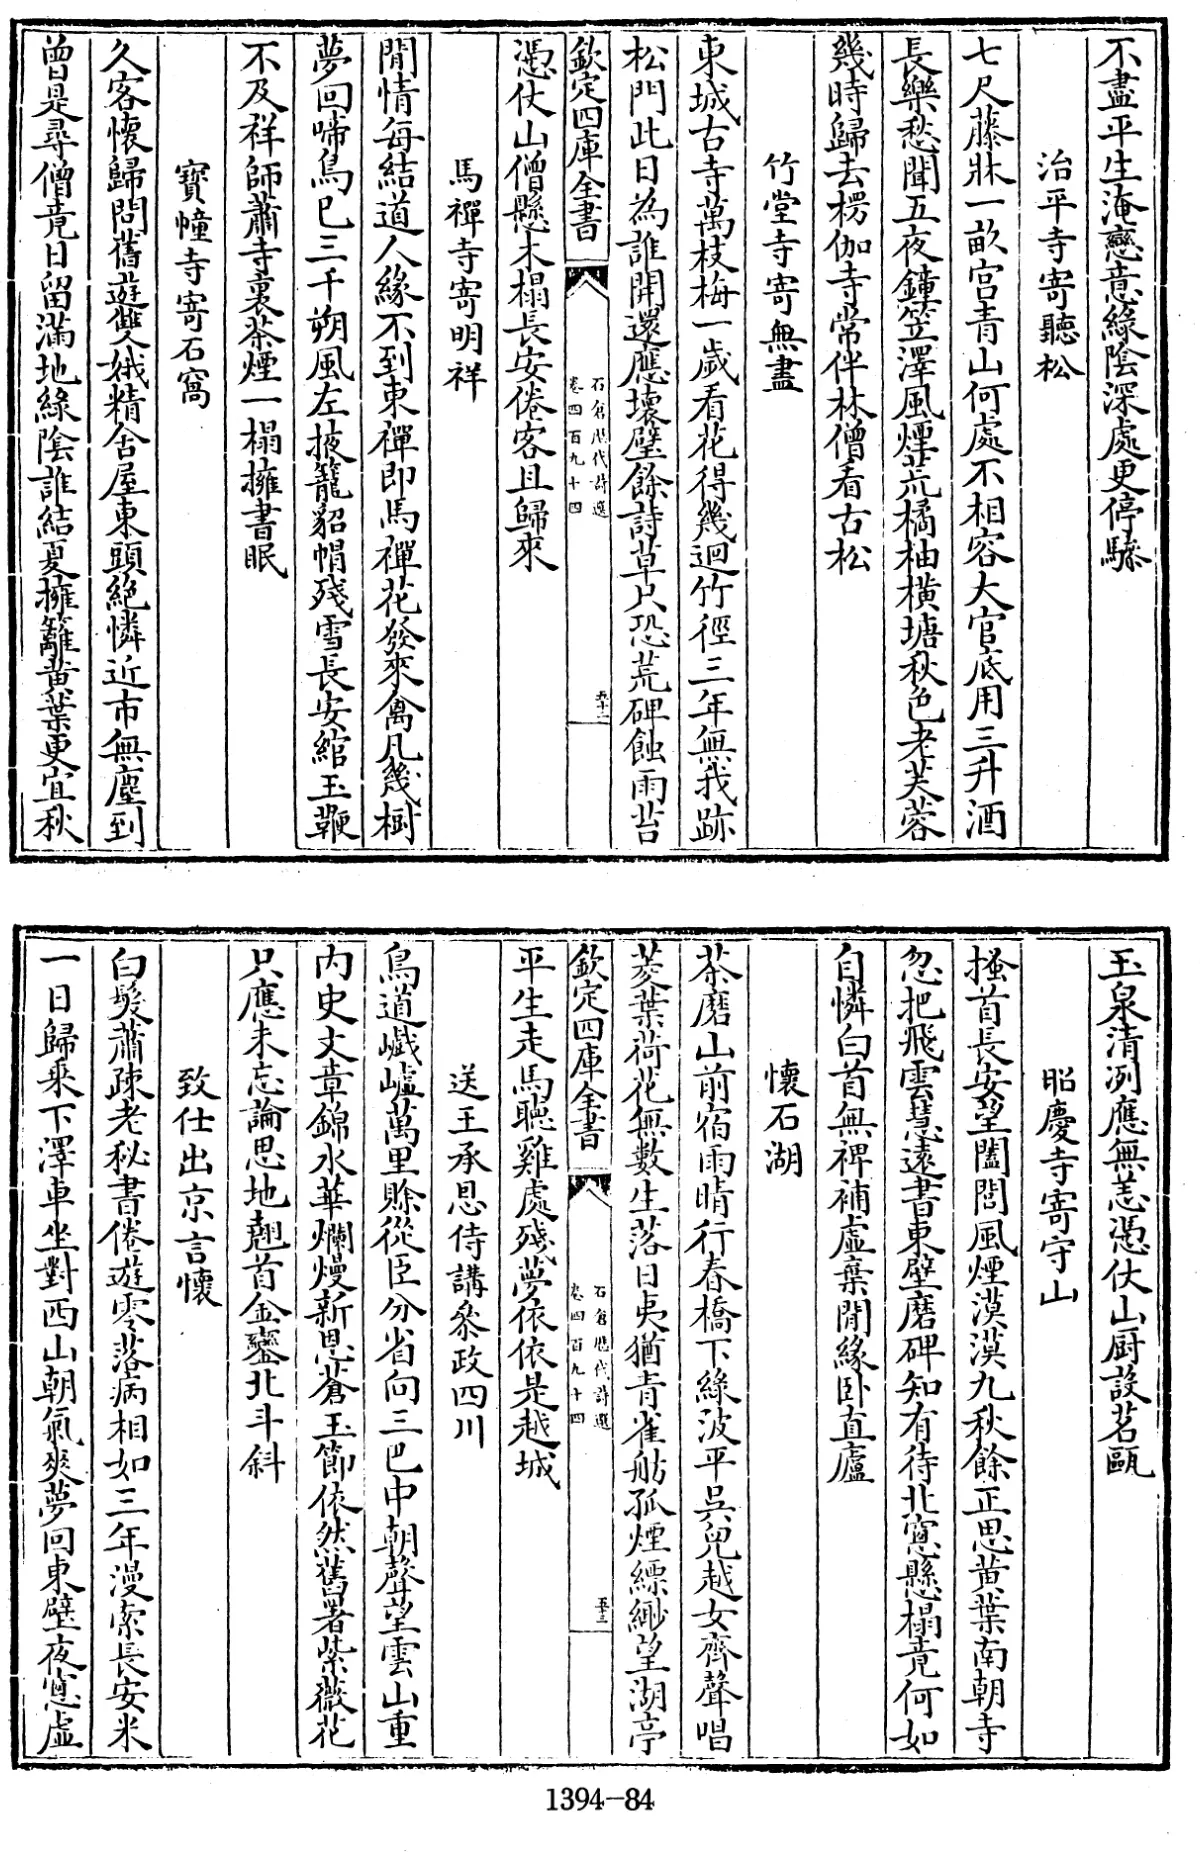 不盡平生淹戀意緑陰深處更停驂
治平寺寄聽松
七尺藤牀一畝宫青山何處不相容大官底用三升酒
長樂愁聞五夜鐘笠澤風煙荒橘柚橫塘秋色老芙蓉
幾時歸去楞伽寺常伴林僧看古松
竹堂寺寄無盡
東城古寺萬枝梅一歲看花得幾迴竹徑三年無我跡
松門此日為誰開還應壞壁餘詩草只恐荒碑蝕雨苔
欽定四庫全書
石倉歷代詩選
卷四百九十四
五十二
憑仗山僧懸木榻長安倦客且歸來
馬禪寺寄明祥
閒情每結道人緣不到東禪即馬禪花發來禽凡幾樹
夢回啼鳥已三千朔風左掖籠貂帽殘雪長安綰玉鞭
不及祥師蕭寺裏茶煙一榻擁書眠
寳幢寺寄石窩
久客懷歸問舊遊雙娥精舍屋東頭絶憐近市無塵到
曾是尋僧竟日留滿地緑陰誰結夏擁籬黄葉更宜秋
玉泉清冽應無恙憑仗山厨設茗甌
昭慶寺寄守山
搔首長安望闔閭風煙漠漠九秋餘正思黄葉南朝寺
忽把飛雲慧遠書東壁磨碑知有待北窻懸榻竟何如
自憐白首無裨補虛棄閒緣卧直廬
懷石湖
茶磨山前宿雨晴行春橋下緑波平吳兒越女齊聲唱
菱葉荷花無數生落日夷猶青雀舫孤煙縹緲望湖亭
欽定四庫全書
石倉歷代詩選
卷四百九十四
五十三
平生走馬聽雞處殘夢依依是越城
送王承恩侍講叅政四川
鳥道巇嶇萬里賒從臣分省向三巴中朝聲望雲山重
内史文章錦水華爛熳新恩蒼玉節依然舊署紫薇花
只應未忘論思地翹首金鑾北斗斜
致仕出京言懷
白髮蕭疎老秘書倦遊零落病相如三年漫索長安米
一日歸乘下澤車坐對西山朝氣爽夢回東壁夜窻虛
1394-84